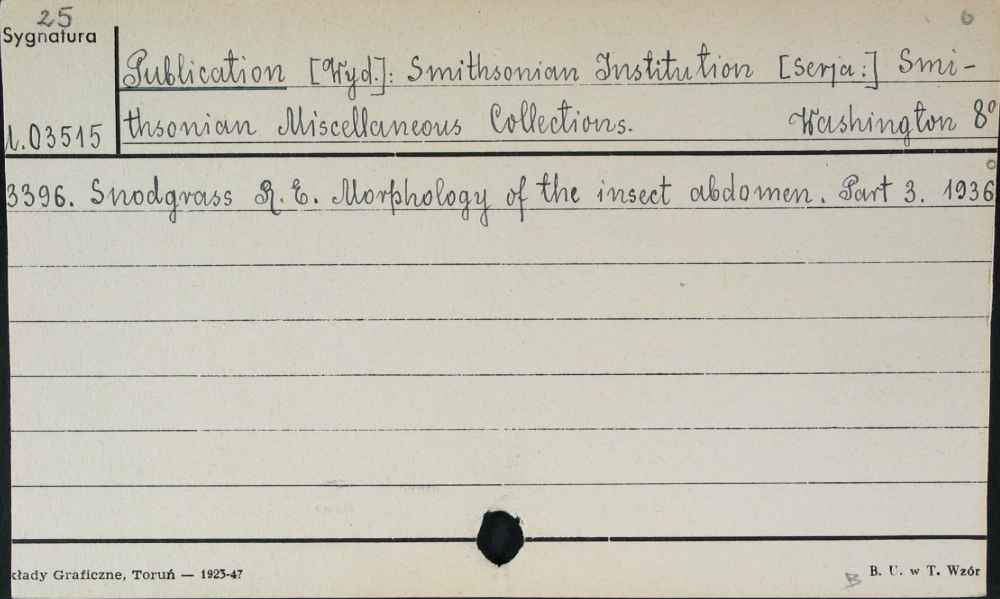 25
6
Sygnatura
Publication [Wyd.]: Smithsonian Institution [Serja:] Smi-
03515 thsonian Miscellaneous Collections. Washington 8°
3396. Snodgrass R. E. Morphology of the insect abdomen. Part 3. 1936
kłady Graficzne, Toruń — 1923-47
B B. U. w T. Wzór